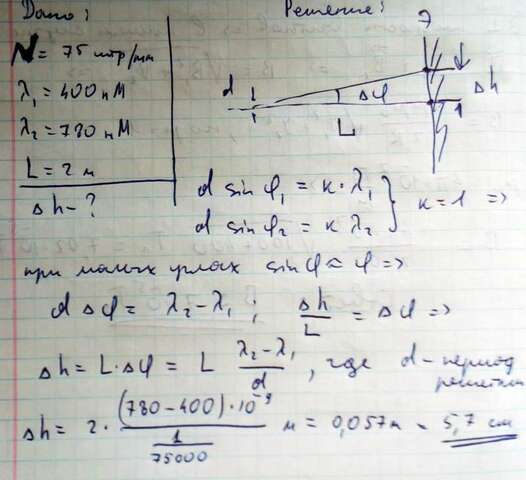 Дано:
Решение:
N = 75 штр/мм
λ₁ = 400 нм
λ₂ = 780 нм
L = 2 м
Δh - ?
Э
d
Δφ
Δh
L
d sin φ₁ = к · λ₁
d sin φ₂ = к λ₂ } к = 1 =>
при малых углах sin φ ≈ φ =>
d Δφ = λ₂ - λ₁ ; Δh/L = Δφ =>
Δh = L · Δφ = L (λ₂ - λ₁)/d , где d - период
решетки
Δh = 2 · (780 - 400) · 10⁻⁹ / (1/75000) м = 0,057 м = 5,7 см